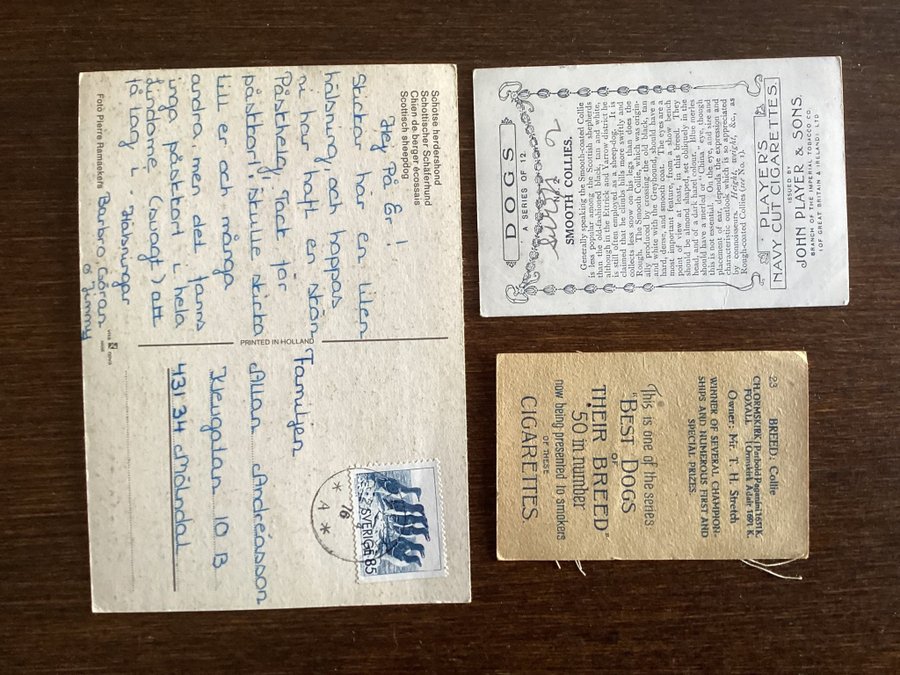 Schotse herdershond
Schottischer Schäferhund
Chien de berger écossais
Scottish sheepdog
Hej På Er
Skickar här en liten
hälsning och hoppas
ni har haft en skön
Påskhelg. Tack för
påskkort, skulle skicka
till er och många
andra men det fanns
inga påskkort i hela
Lindome (svagt) att
få tag i.
Hälsningar
Barbro Göran
o Jimmy
Foto Pierre Ramaekers
PRINTED IN HOLLAND
76
4
SVERIGE 85
Familjen
Allan Andréasson
10 B
431 34 Mölndal
DOGS
A SERIES OF 12.
2
SMOOTH COLLIES.
Generally speaking the Smooth-coated Collie
is less popular among the Scottish shepherds
than the old-fashioned black, tan and white,
although in the Ettrick and Yarrow district he
is still often employed as a sheep-dog. It is
claimed that he climbs hills more swiftly and
collects less snow on his legs than does the
Rough. The Smooth Collie, which was origin-
ally produced by crossing the old black, tan
and white with the Greyhound, should have a
hard, dense, and smooth coat. The eyes are a
most important feature, from a show bench
point of view at least, in this breed. They
should be almond shaped, set obliquely in the
head, and of a dark hazel colour. Blue merles
should have a merled or "China" eye, though
this is not essential. On the eye, and size and
placement of ear, depends the expression and
characteristic outlook, which is so appreciated
by connoisseurs. Height, weight, &c., as
Rough-coated Collies (see No. 1).
PLAYER'S
NAVY CUT CIGARETTES.
ISSUED BY
JOHN PLAYER & SONS.
BRANCH OF THE IMPERIAL TOBACCO CO.
(OF GREAT BRITAIN & IRELAND), LTD
23 BREED: Collie
CH. ORMSKIRK (Parbold Paganini 1651 K.
FOXALL (Ormskirk Adair 1891 K.
Owner: Mr. T. H. Stretch
WINNER OF SEVERAL CHAMPION-
SHIPS AND NUMEROUS FIRST AND
SPECIAL PRIZES
This is one of the series
"BEST DOGS
OF
THEIR BREED"
50 in number
now being presented to smokers
OF THESE
CIGARETTES